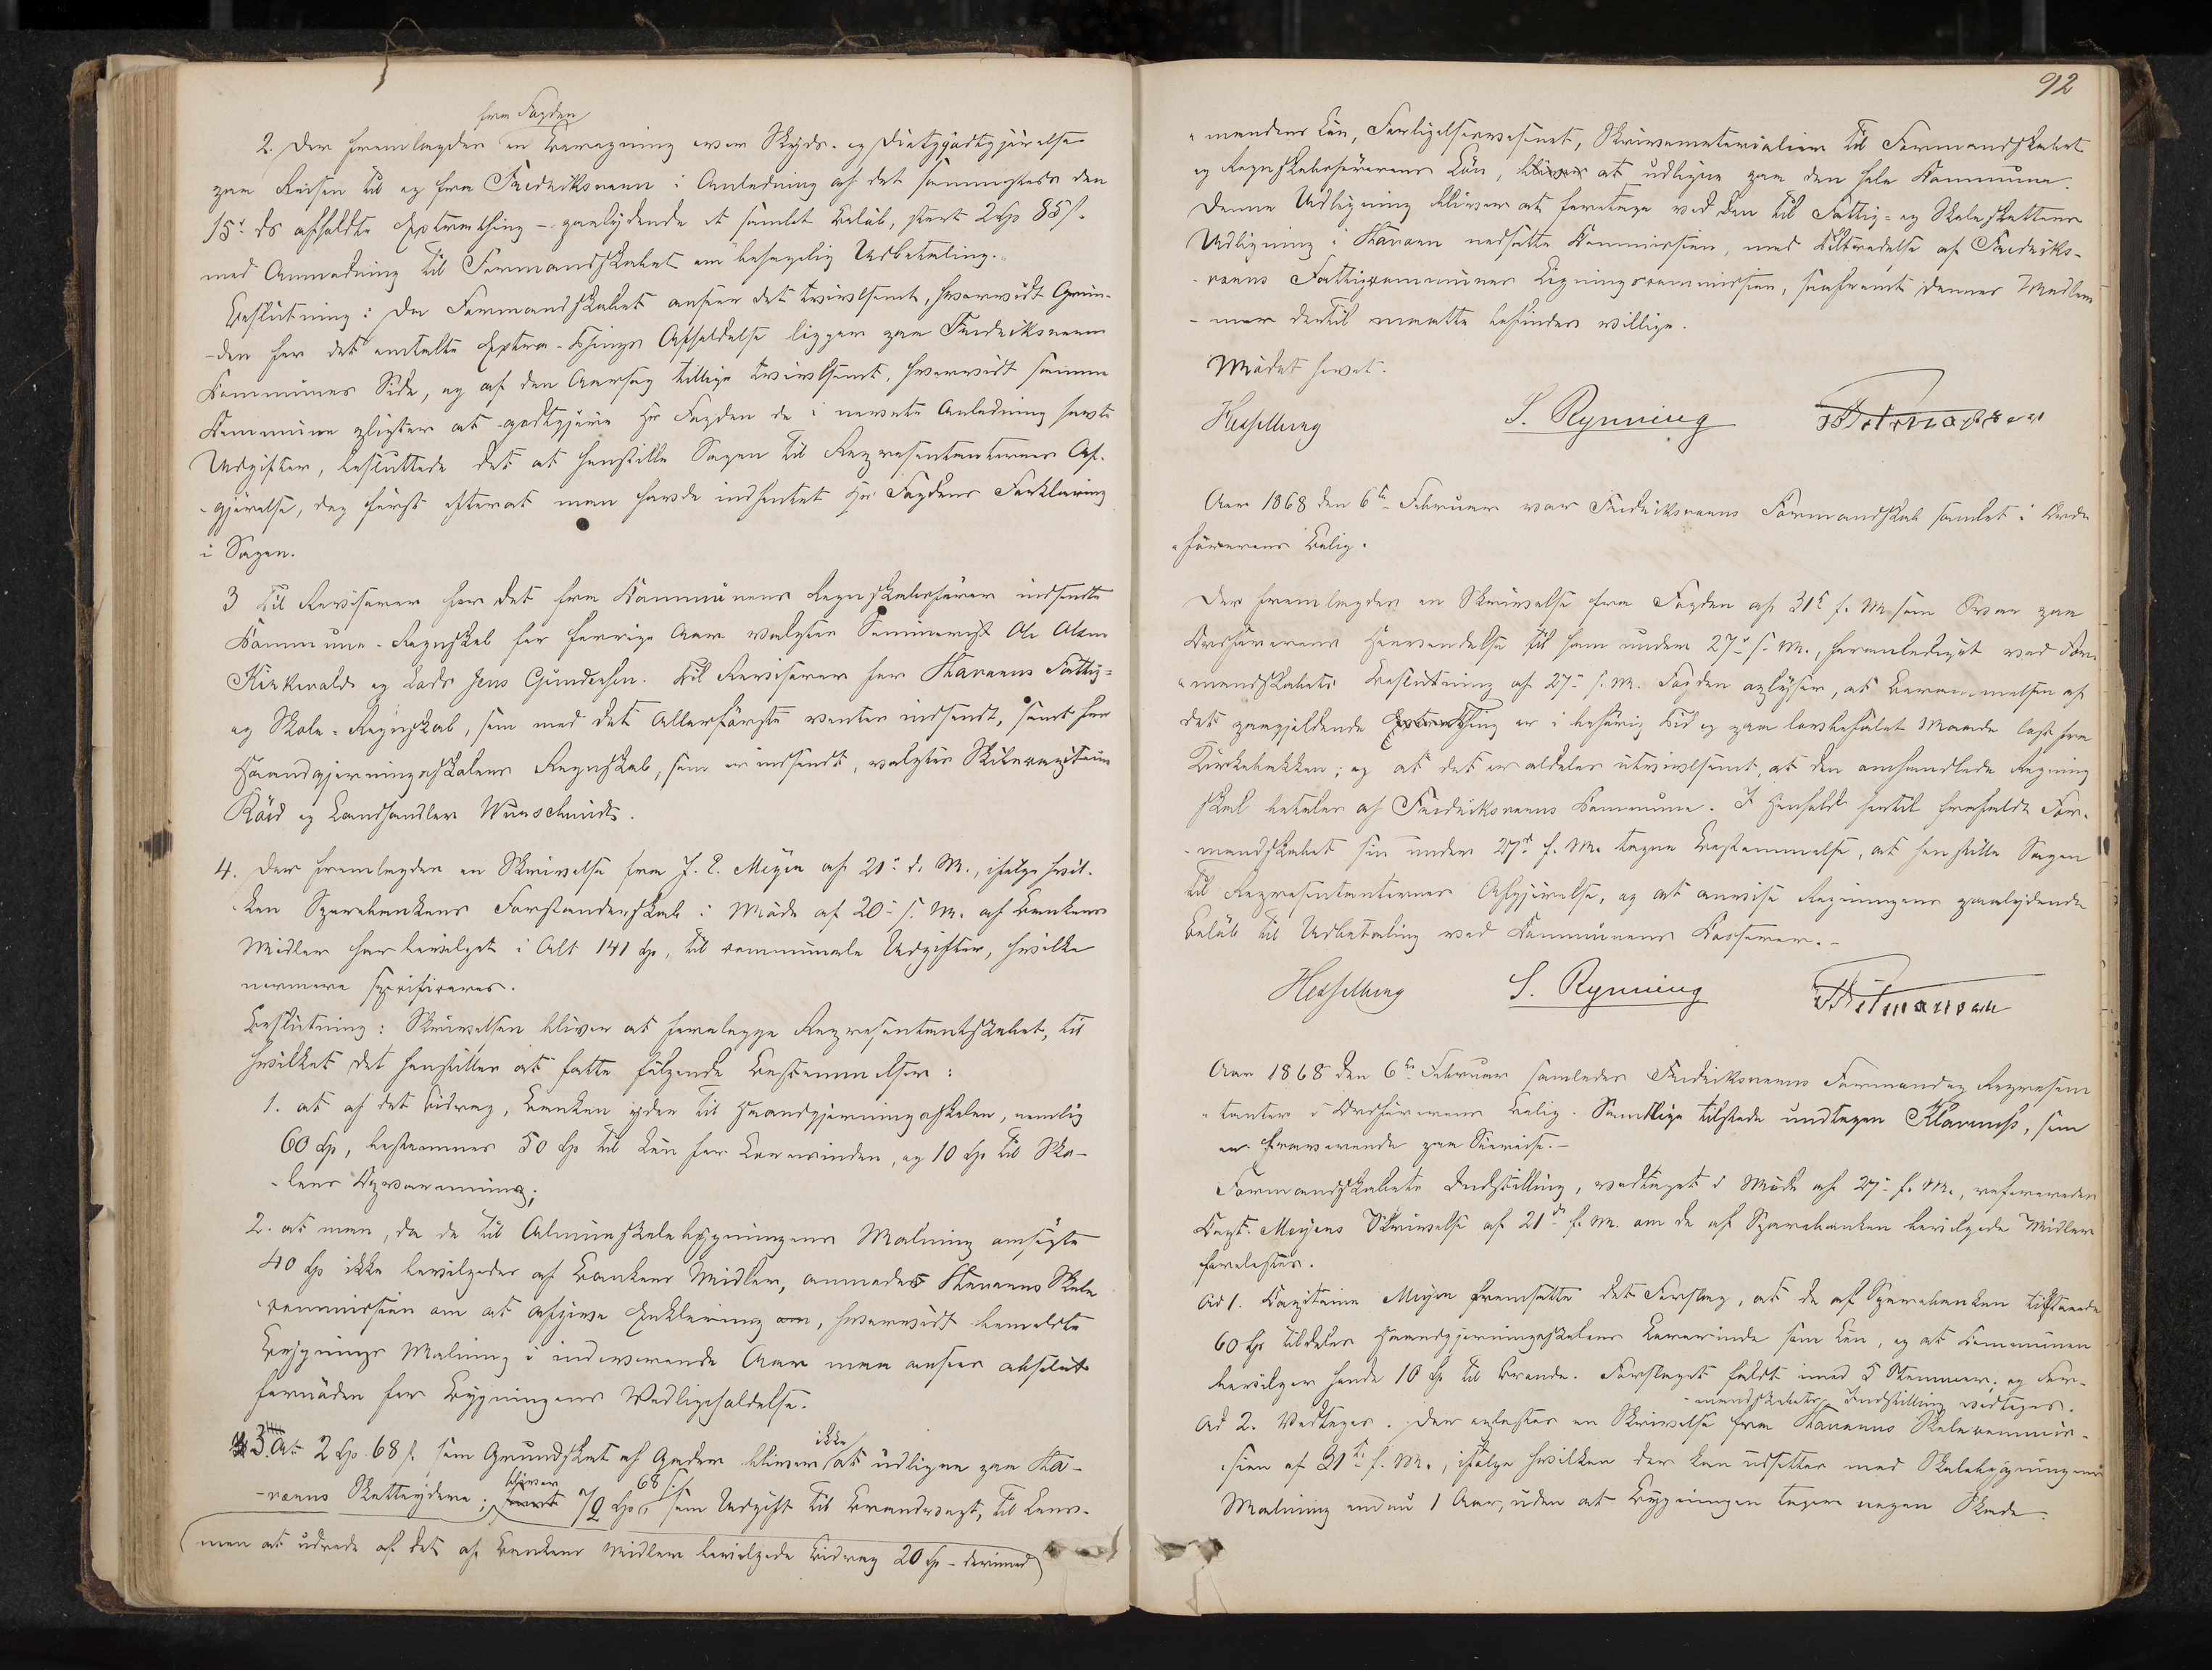 fra Fogden
2. Der fremlagdes en Beregning over Skyds- og Diætgodtgjørelse
paa Reisen til og fra Fredriksværn i Anledning af det sammesteds den
15de ds afholdte Extrathing – paalydende et samlet Beløb, stort 2 Sp 85 s.
med Anmodning til Formandskabet om behagelig Udbetaling.
Beslutning: Da Formandskabet anseer det tvivlsomt, hvorvidt Grun-
-den for det omtalte Extra-Things Afholdelse ligger paa Fredriksværns
Kommunes Side, og af den Aarsag tillige tvivlsomt, hvorvidt samme
Kommune pligter at godtgjøre Hr Fogden de i nævnte Anledning havte
Udgifter, besluttede det at henstille Sagen til Repræsentanternes Af-
-gjørelse, dog først efterat man havde indhentet Hr Fogdens Forklaring
i Sagen.
3 Til Revisorer for det fra Kommunens Regnskabsfører indsendte
Kommune-Regnskab for forrige Aar valgtes Seminarist Ole
Kirkevold og Lods Jens Gundersen. Til Revisorer for Stavern Fattig-
og Skole-Regnskab, som med det Allerførste ventes indsendt, samt for
Haandgjerningsskolens Regnskab, som er indsendt, valgtes
og Landhandler Wunschmidt.
4. Der fremlagdes en Skrivelse fra J. E. Meyer af 21de d. M., ifølge hvil-
-ken Sparebankens Forstanderskab i Møde af 20de s. M. af Bankens
Midler har bevilget i Alt 141 Sp, til communale Udgifter, hvilke
nærmere specificeres.
Beslutning: Skrivelsen bliver at forelægge Repræsentantskabet, til
hvilket det henstilles at fatte følgende Bestemmelser:
1. at af det Bidrag, Banken yder til Haandgjerningsskolen, nemlig
60 Sp, bestemmes 50 Sp til Løn for Lærerinden, og 10 Sp til Sko-
-lens Opvarmning;
2. at man, da de til Almueskolebygningens Maling ansøgte
40 Sp ikke bevilgedes af Bankens Midler, anmoder Staverns Skole
commission om at afgive Erklæring om, hvorvidt bemeldte
Bygnings Maling i indeværende Aar man anseer absolut
fornøden for Bygningens Vedligeholdelse.
3. At 2 Sp. 68 s. som Grundskat af Gaden bliver ikke at udligne paa Sta-
-værns Skatteydere; bliver 9 Sp 68 s. som Udgift til Brandvagt, til Lens-
men at udrede af det af Bankens Midler bevilgede Bidrag 20 Sp – derimod
92
-mandens Løn, Forligelsesvæsenet, Skrivematerialier til Formandskabet
og Regnskabsførerens Løn, bliver at udligne paa den hele Kommune.
Denne Udligning bliver at foretage ved den til Fattig- og Skoleskattens
Udligning i Stavern nedsatte Kommission, med Tiltrædelse af Fredriks-
-værns Fattigcommunes Ligningscommission, saafremt dennes Medlem
-mer dertil maatte befindes villige.
Mødet hævet.
Hesselberg S. Rynning
Aar 1868 den 6te Februar var Fredriksværns Formandskab samlet i Ordø
-førerens Bolig.
Der fremlagdes en Skrivelse fra Fogden af 31te f. M. som Svar paa
Ordførerens Henvendelse til ham under 27de s. M., foranlediget ved For-
-mandskabets Beslutning af 27de s. M. Fogden oplyser, at Berammelsen af
det paagjeldende Extrathing er i behørig Tid og paa lovbefalet Maade læst fra
Kirkebakken; og at det er aldeles utvivlsomt, at den omhandlede Regning
skal betales af Fredriksværns Kommune. I Henhold hertil frafaldt For-
-mandskabet sin under 27de f. M. tagne Bestemmelse, at henstille Sagen
til Repræsentanternes Afgjørelse, og at anvise Regningens paalydende
Beløb til Udbetaling ved Kommunens Kasserer.–
Hesselberg S. Rynning
Aar 1868 den 6te Februar samledes Fredriksværns Formænd og Repræsen
-tanter i Ordførerens Bolig. Samtlige tilstede undtagen Klavenæs, som
er fraværende paa Søreise.–
Formandskabets Indstilling, vedtaget i Møde af 27de f. M., refereredes
Capt. Meyers Skrivelse af 21de f. M. om de af Sparebanken bevilgede Midler
forelæstes.
Ad 1. Kapitaine Meyer fremsatte det Forslag, at de af Sparebanken tilstaaede
60 Sp tildeles Haandgjerningsskolens Lærerinde som Løn, og at Kommunen
bevilger hende 10 Sp til Brænde. Forslaget faldt imod 5 Stemmer; og For-
-mandskabets Indstilling vedtoges.
Ad 2. Vedtoges. Der oplæstes en Skrivelse fra Staverns Skolecommis-
-sion af 31te f. M., ifølge hvilken der kan udsættes med Skolebygningens
Maling endnu 1 Aar, uden at Bygningen tager nogen Skade.